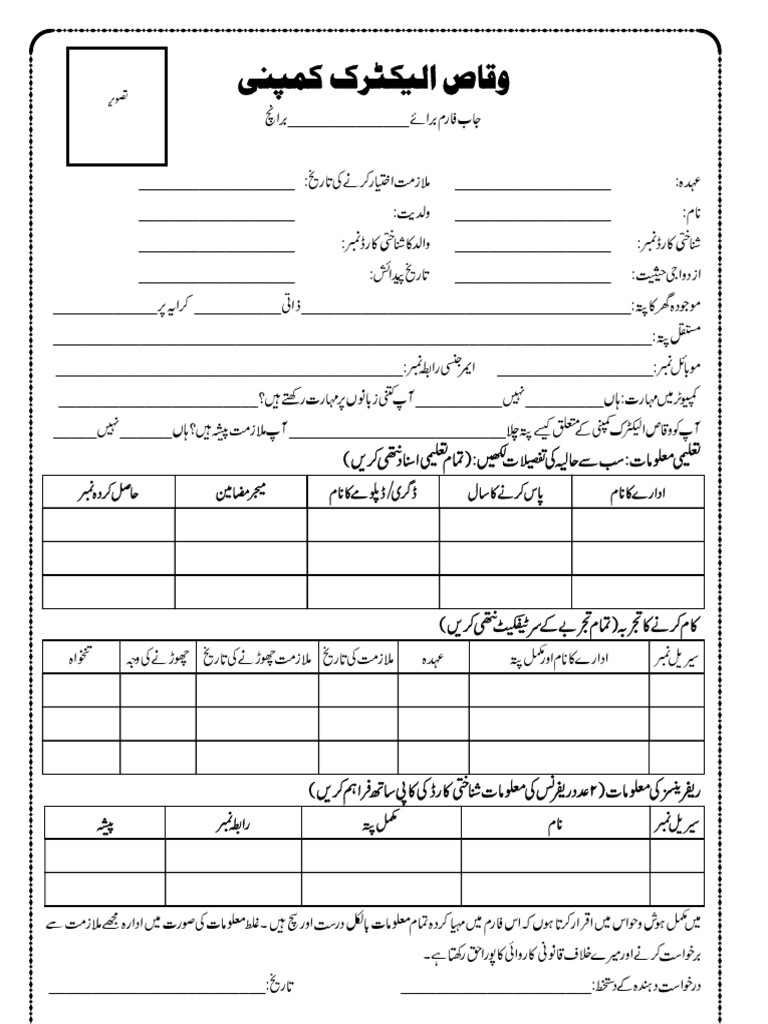 وقاص الیکٹرک کمپنی
تصویر
جاب فارم برائے______________برانچ
عہدہ: __________________ ملازمت اختیار کرنے کی تاریخ: __________________
نام: __________________ ولدیت: __________________
شناختی کارڈ نمبر: __________________ والد کا شناختی کارڈ نمبر: __________________
ازدواجی حیثیت: __________________ تاریخ پیدائش: __________________
موجودہ گھر کا پتہ: ______________________________________ذاتی __________ کرایہ پر____________
مستقل پتہ: ____________________________________________________________________
موبائل نمبر: __________________ ایمرجنسی رابطہ نمبر: ________________________________________
کمپیوٹر میں مہارت: ہاں_________نہیں__________آپ کتنی زبانوں پر مہارت رکھتے ہیں؟_______________________
آپ کو وقاص الیکٹرک کمپنی کے متعلق کیسے پتہ چلا______________________آپ ملازمت پیشہ ہیں؟ ہاں______نہیں_____
تعلیمی معلومات: سب سے حالیہ کی تفصیلات لکھیں: (تمام تعلیمی اسناد نتھی کریں)
ادارے کا نام پاس کرنے کا سال ڈگری/ڈپلومے کا نام میجر مضامین حاصل کردہ نمبر
کام کرنے کا تجربہ (تمام تجربے کے سرٹیفکیٹ نتھی کریں)
سیریل نمبر ادارے کا نام اور مکمل پتہ عہدہ ملازمت کی تاریخ ملازمت چھوڑنے کی تاریخ چھوڑنے کی وجہ تنخواہ
ریفرینسز کی معلومات (۲ عدد ریفرنس کی معلومات شناختی کارڈ کی کاپی ساتھ فراہم کریں)
سیریل نمبر نام مکمل پتہ رابطہ نمبر پیشہ
میں مکمل ہوش و حواس میں اقرار کرتا ہوں کہ اس فارم میں مہیا کردہ تمام معلومات بالکل درست اور سچ ہیں۔ غلط معلومات کی صورت میں ادارہ مجھے ملازمت سے
برخواست کرنے اور میرے خلاف قانونی کاروائی کا پورا حق رکھتا ہے۔
درخواست دہندہ کے دستخط: ______________________ تاریخ: _________________________